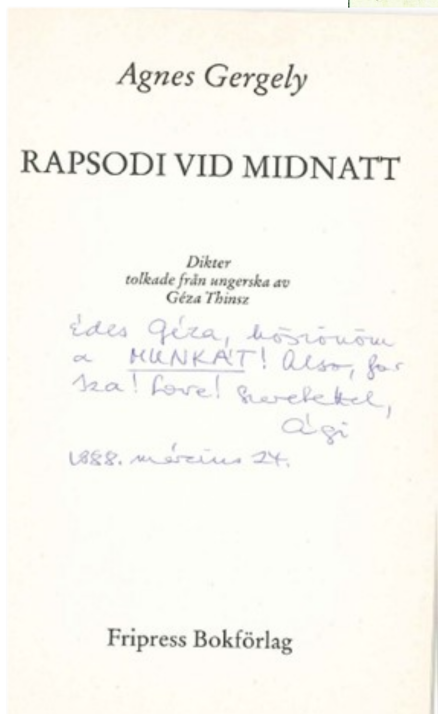 Agnes Gergely
RAPSODI VID MIDNATT
Dikter
tolkade från ungerska av
Géza Thinsz
Édes Géza, köszönöm
a MUNKÁT! Also, for
Love! Szeretettel,
Ági
1988. március 24.
Fripress Bokförlag